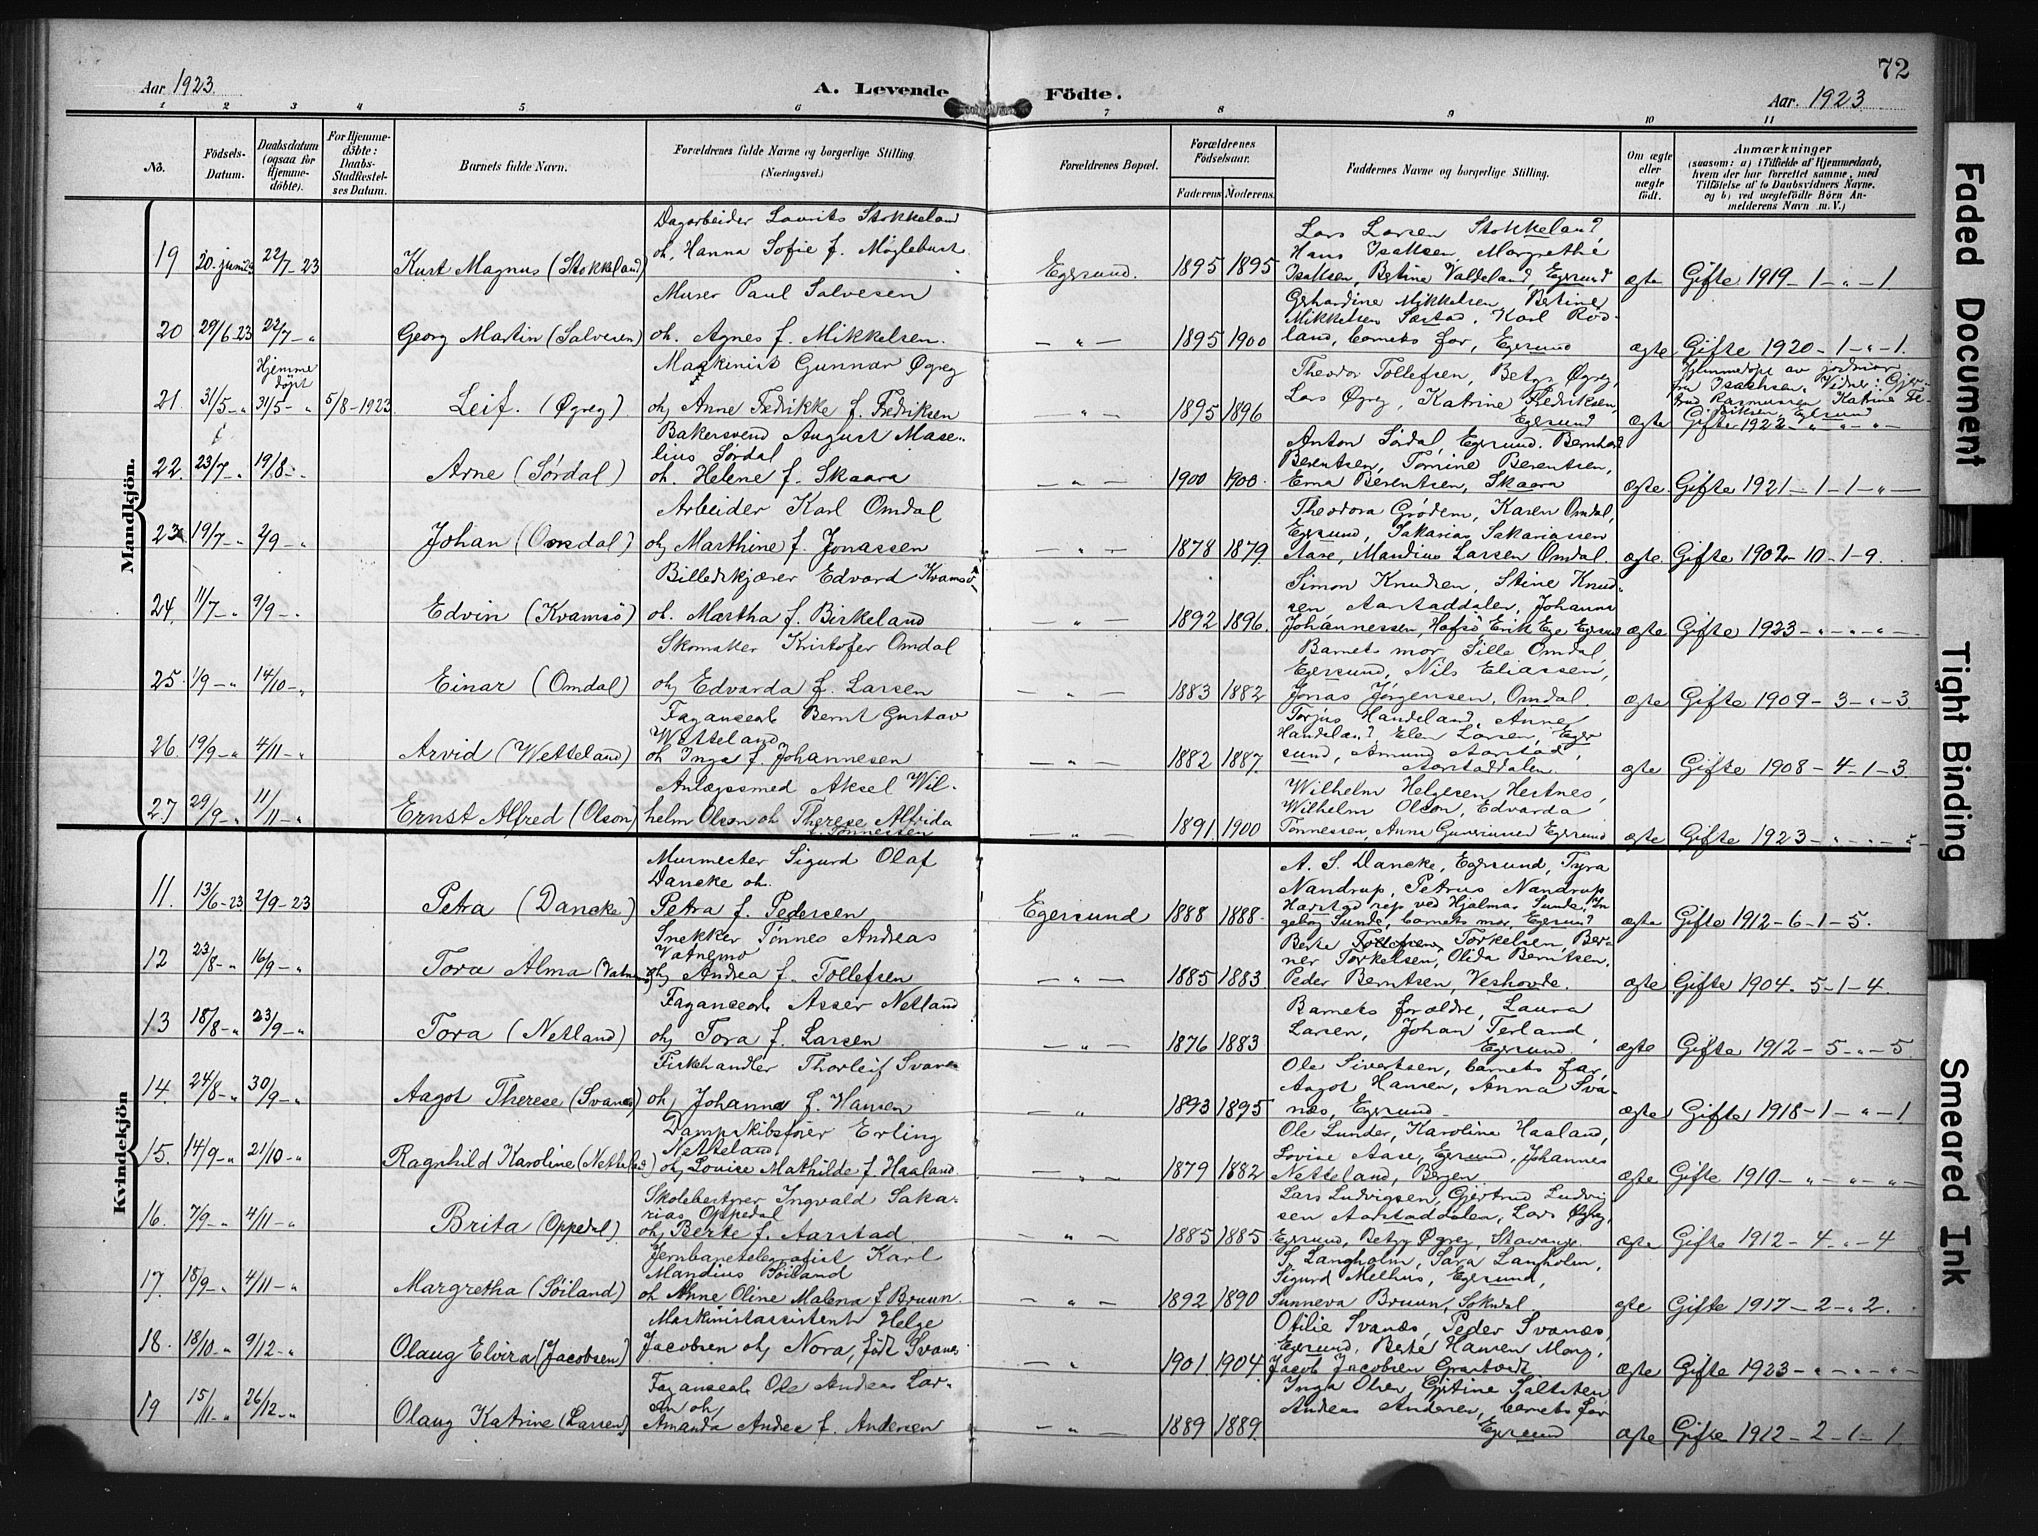 72
Aar. 1923. A. Levende Födte. Aar. 1923
1 2 3 4 5 6 7 8 9 10 11
No. Födsels-Datum. Daabsdatum (ogsaa for Hjemme-döbte). For Hjemme-döbte: Daabs-Stadfæstel-ses Datum. Barnets fulde Navn. Forældrenes fulde Navne og borgerlige Stilling. (Næringsvei.) Forældrenes Bopæl. Forældrenes Födselsaar. Faderens Moderens. Faddernes Navne og borgerlige Stilling. Om ægte eller uægte födt. Anmærkninger (saasom: a) i Tilfælde af Hjemmedaab, hvem der har forrettet samme, med Tilföielse af to Daabsvidners Navne, og b) ved uægtefödte Börn An-melderens Navn m. V.)
Mandkjön.
Dagarbeider Lauritz Stokkeland Lars Larsen Stokkeland
19 20. juni 22/7-23 Kurt Magnus (Stokkeland) oh. Hanna Sofie f. Møglebust Egersund. 1895 1895 Hans Isaksen, Margrethe Isaksen, Betine Valdeland, Egersund ægte Gifte 1919-1-„-1
Murer Paul Salvesen Gerhardine Mikkelsen, Betine
20 29/6-23 22/7-„ Georg Martin (Salvesen) oh. Agnes f. Mikkelsen. —„— 1895 1900 Mikkelsen Sæstad, Karl Rød-land, barnets far, Egersund ægte Gifte 1920-1-„-1.
Hjemme døpt Maskinist Gunnar Øgrey Theodor Tollefsen, Betzy Øgrey, Hjemmedøpt av jordmor
21. 31/5-„ 31/5-„ 5/8-1923. Leif. (Øgrey) oh. Anne Fredrikke f. Fredriksen —„— 1895 1896 Lars Øgrey, Katrine Fredriksen, Egersund ægte frk Isachsen. Vidner: Gjer-trud Rasmussen Katrine Fredriksen, Egersund Gifte 1922-„-„-„-
Bakersvend August Mase-lius Sørdal Anton Sørdal, Egersund. Bernhard
22. 23/7-„ 19/8-„ Arne (Sørdal) oh. Helene f. Skaara —„— 1900 1900. Berentsen, Tomine Berentsen, Erna Berentsen, Skaara ægte Gifte 1921-1-1-„-
Arbeider Karl Omdal Theodora Grødem, Karen Omdal,
23 19/7-„ 2/9-„ Johan (Omdal) oh. Marthine f. Jonassen —„— 1878 1879. Egersund, Sakarias Sakariassen Aase, Mandius Larsen Omdal. ægte. Gifte 1902-10-1-9.
Billedskjærer Edvard Kvamsø Simon Knudsen, Stine Knud-
24. 11/7-„ 9/9-„ Edvin (Kvamsö) oh. Martha f. Birkeland —„— 1892 1896. sen, Aarstaddalen, Johanne Johannessen, Hafsö, Erik Ege Egersund ægte Gifte 1923-„-„-„-
Skomaker Kristofer Omdal Barnets mor, Sille Omdal,
25. 1/9-„ 14/10-„ Einar (Omdal) oh. Edvarda f. Larsen —„— 1883 1882 Egersund, Nils Eliassen, Jonas Jørgensen, Omdal. ægte Gifte 1909-3-„-3
Fajanseab. Bernt Gustav Wetteland Torjus Handeland, Anne
26. 19/9-„ 4/11-„ Arvid (Wetteland) oh Inga f. Johannesen —„— 1882 1887. Handeland, Elen Larsen, Eger sund, Amund Aarstad, Aarstaddalen. ægte Gifte 1908-4-1-3.
Anlægssmed Aksel Wil- Wilhelm Helgesen Hestnes,
27 29/9-„ 11/11-„ Ernst Alfred (Olson) helm Olson oh Therese Alfrida f. Tønnessen —„— 1891. 1900 Wilhelm Olson, Edvarda Tønnessen, Anna Egersund ægte Gifte 1923-„-„-„-
Kvindekjön
Murmester Sigurd Olaf A. S. Dancke, Egersund, Tyra
11. 13/6-23 2/9-23 Petra (Dancke) Dancke oh. Petra f. Pedersen Egersund 1888 1888. Nandrup, Petrus Nandrup Harstad rep ved Hjalmar Sunde, In geborg Sunde, barnets mor, Egersund ægte Gifte 1912-6-1-5.
Snekker Tønnes Andreas Vatnemo Berte Tollefsen, Torkelsen, Ber-
12 23/8-„ 16/9-„ Tora Alma (Vatnemo) oh. Andrea f. Tollefsen —„— 1885 1883 ner Torkelsen, Olida Berntsen, Peder Berntsen, Veshovde. ægte Gifte 1904-5-1-4.
Fajanseab Asser Netland Barnets forældre, Laura
13 18/8-„ 23/9-„ Tora (Netland) oh. Tora f. Larsen —„— 1876 1883 Larsen, Johan Terland, Egersund. ægte Gifte 1912-5-„-5.
Fiskehandler Thorleif Svanes Ole Sivertsen, barnets far,
14. 24/8-„ 30/9-„ Aagot Therese (Svanes) oh. Johanna f. Hansen —„ 1893 1895 Aagot Hansen, Anna Sva-næs, Egersund. ægte Gifte 1918-1-„-1
Dampskibsfører Erling Netteland Ole Lunder, Karoline Haaland,
15. 14/9-„ 21/10-„ Ragnhild Karoline (Netteland) oh. Louise Mathilde f. Haaland —„— 1879 1882 Lovise Aase, Egersund, Johannes Netteland, Bergen ægte Gifte 1919-„-„-„-
Skolebestyrer Ingvald Saka-rias Oppedal Lars Ludvigsen, Gjertrud Ludvig
16. 7/9-„ 4/11-„ Brita (Oppedal) oh. Berte f. Aarstad. „— 1885 1885 sen Aarstaddalen, Lars Øgrey, Egersund, Betzy Øgrey, Stavanger ægte Gifte 1912-4-„-4
Jernbanetelegrafist Karl Mandius Söiland S. Langholm, Sara Langholm,
17. 18/9-„ 4/11-„ Margretha (Söiland) oh Anne Oline Malena f Bruun. —„— 1892 1890 Sigurd Melhus, Egersund, Sunneva Bruun, Sokndal. ægte Gifte 1917-2-„2.
Maskinistassistent Helge Otilie Svanæs, Peder Svanæs,
18. 18/10-„ 9/12-„ Olaug Elvira (Jacobsen) Jacobsen oh. Nora, født Svanes —„ 1901. 1904. Egersund, Berte Hansen Mong, Jacob Jacobsen ægte Gifte 1923-„-„-„-
Fajanseab Ole Andreas Lar- Inga Olsen, Gjetine Saltsten
19 15/11-„ 26/12-„ Olaug Katrine (Larsen) sen oh. Amanda Andrea f. Andersen —„— 1889 1889. Andreas Andersen, barnets far Egersund ægte Gifte 1912-2-1-1.
Faded Document
Tight Binding
Smeared Ink